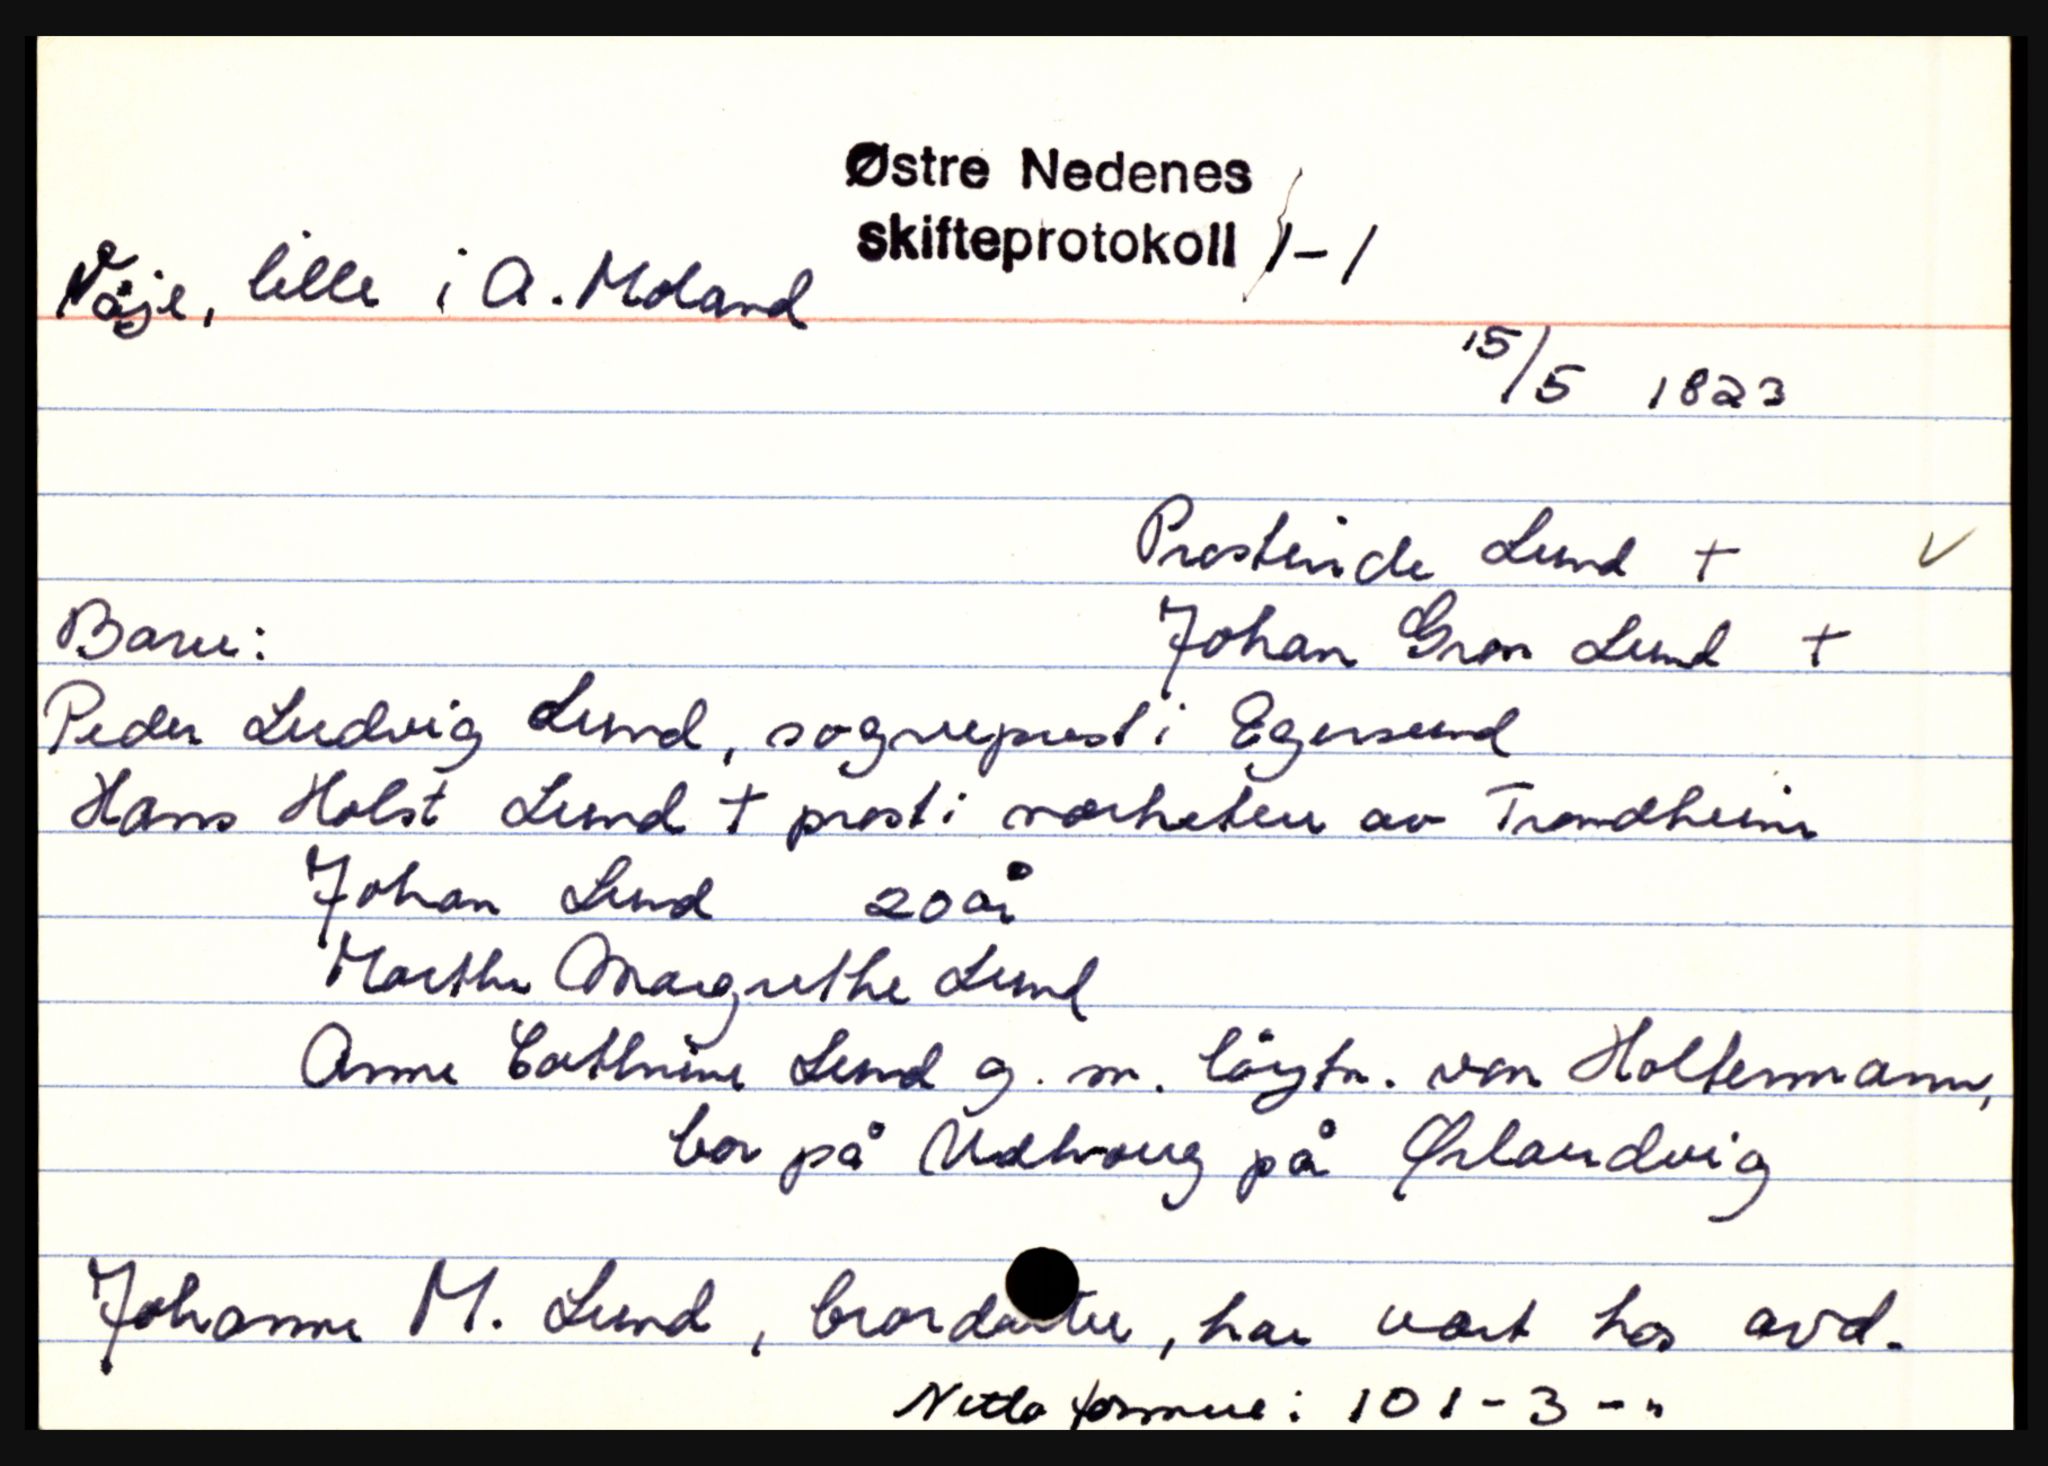 Østre Nedenes
skifteprotokoll 1-1
Våje, lille i A. Moland
15/5 1823
Prostinde Lund +
Johan Grøn Lund +
Barn:
Peder Ludvig Lund, sogneprest i Egersund
Hans Holst Lund + prost i nærheten av Trondheim
Johan Lund 20 år
Marthe Margrethe Lund
Anne Cathrine Lund g. m. löytn. von Holtermann,
bor på Udhoug på Ørlandvig
Johanne M. Lund, brordatter, har vært hos avd.
Netto formue: 101-3-"